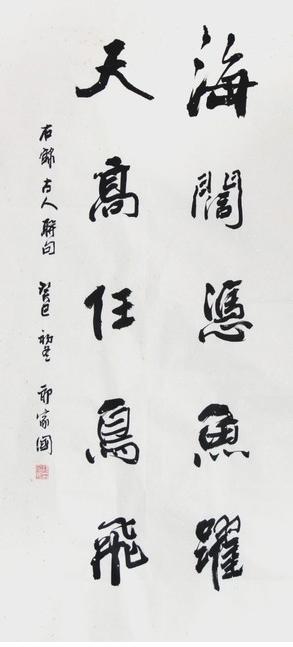 海闊憑魚躍
天高任鳥飛
右錄古人聯句 癸巳 初冬 郭家國